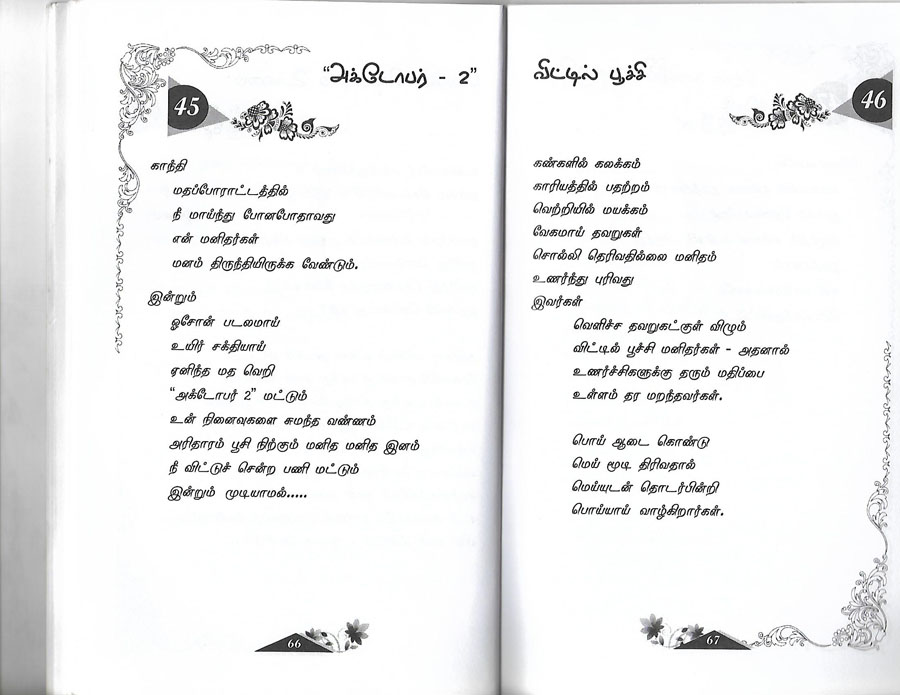 "அக்டோபர் - 2"
45
காந்தி
மதப்போராட்டத்தில்
நீ மாய்ந்து போனபோதாவது
என் மனிதர்கள்
மனம் திருந்தியிருக்க வேண்டும்.
இன்றும்
ஓசோன் படலமாய்
உயிர் சக்தியாய்
ஏனிந்த மத வெறி
"அக்டோபர் 2" மட்டும்
உன் நினைவுகளை சுமந்த வண்ணம்
அரிதாரம் பூசி நிற்கும் மனித மனித இனம்
நீ விட்டுச் சென்ற பணி மட்டும்
இன்றும் முடியாமல்.....
66
விட்டில் பூச்சி
46
கண்களில் கலக்கம்
காரியத்தில் பதற்றம்
வெற்றியில் மயக்கம்
வேகமாய் தவறுகள்
சொல்லி தெரிவதில்லை மனிதம்
உணர்ந்து புரிவது
இவர்கள்
வெளிச்ச தவறுகட்குள் விழும்
விட்டில் பூச்சி மனிதர்கள் - அதனால்
உணர்ச்சிகளுக்கு தரும் மதிப்பை
உள்ளம் தர மறந்தவர்கள்.
பொய் ஆடை கொண்டு
மெய் மூடி திரிவதால்
மெய்யுடன் தொடர்பின்றி
பொய்யாய் வாழ்கிறார்கள்.
67